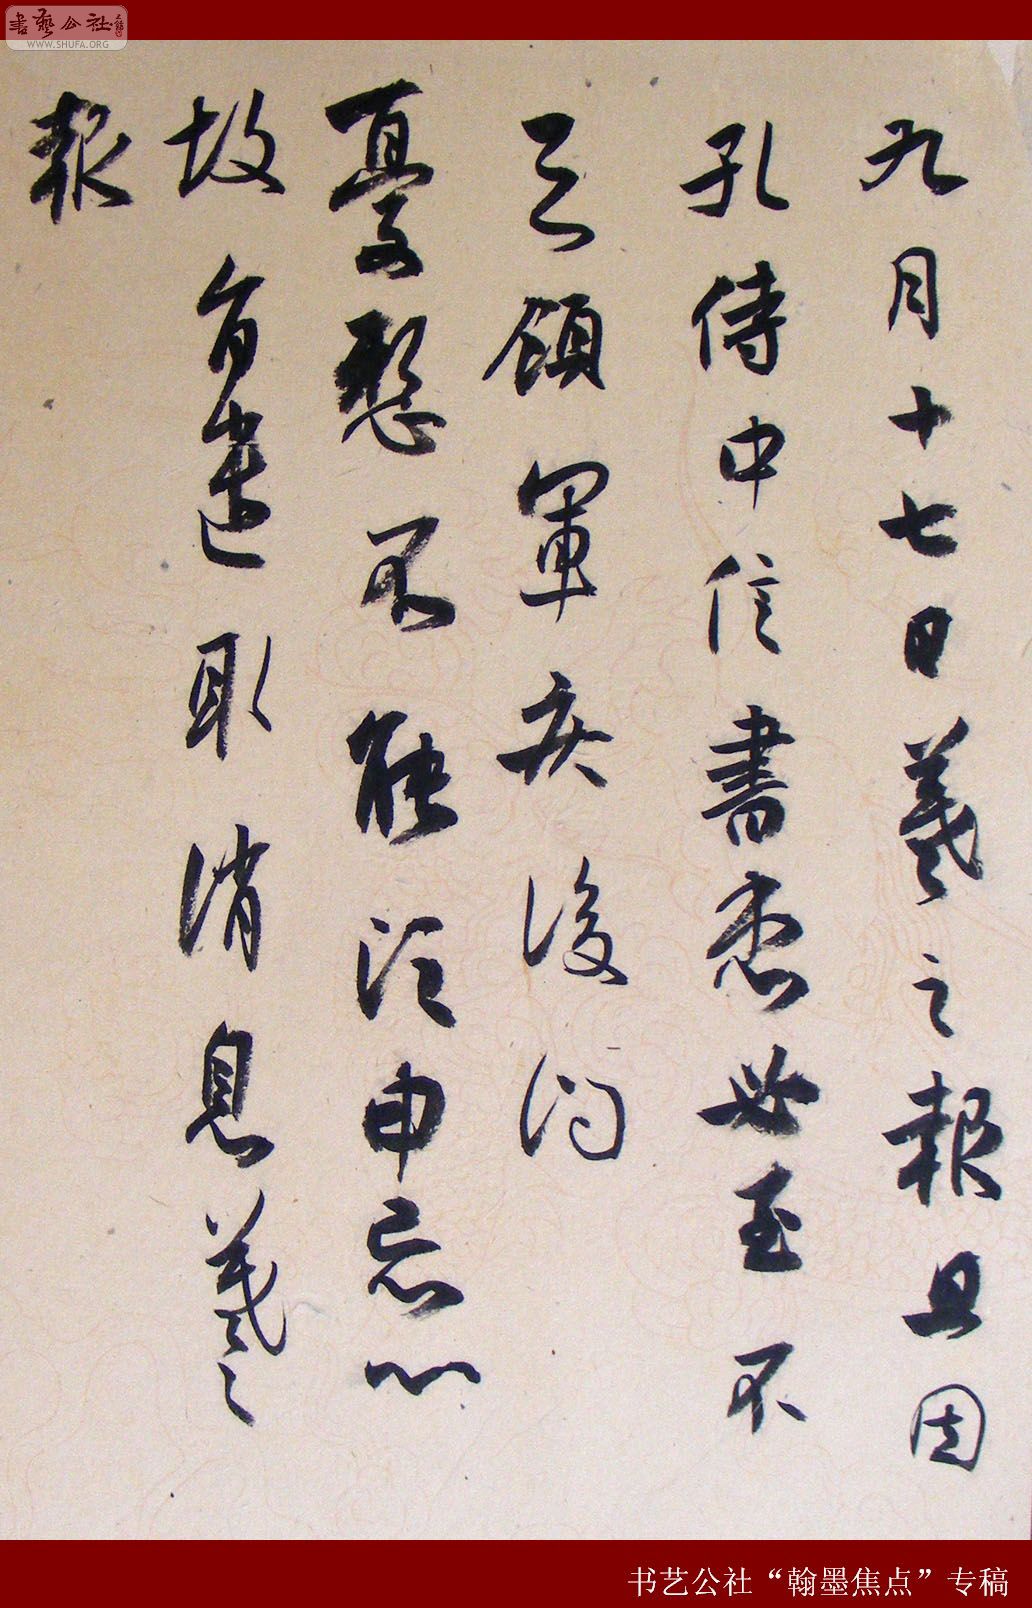 書藝公社
WWW.SHUFA.ORG
九月十七日羲之報且因
孔侍中信書想必至不
知領軍疾後問
憂懸不能須臾忘心
故旨遣取消息羲之
報
书艺公社“翰墨焦点”专稿